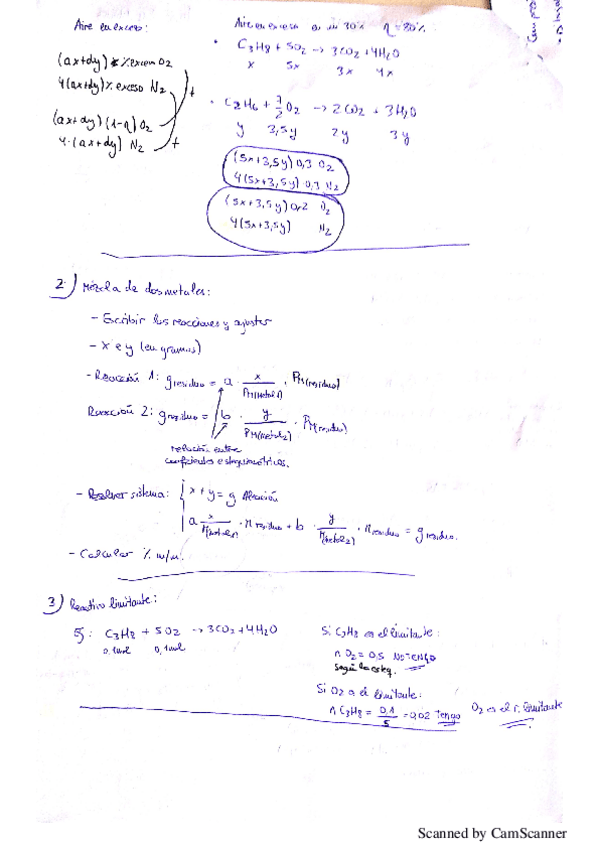 Aire en exceso:
(ax+dy) % exceso O2
4(ax+dy) % exceso N2
(ax+dy)(1-η) O2
4·(ax+dy) N2
Aire en exceso en un 30% η=80%
· C3H8 + 5O2 → 3CO2 + 4H2O
x 5x 3x 4x
· C2H6 + 7/2 O2 → 2CO2 + 3H2O
y 3,5y 2y 3y
(5x+3,5y) 0,3 O2
4(5x+3,5y) 0,3 N2
(5x+3,5y) 0,2 O2
4(5x+3,5y) N2
2) Mezcla de dos metales:
- Escribir las reacciones y ajustar
- x e y (en gramos)
- Reacción 1: g residuo = a · x/PM(metal1) · PM(residuo)
Reacción 2: g residuo = b · y/PM(metal2) · PM(residuo)
relación entre
coeficientes estequiométricos.
- Resolver sistema: { x + y = g Aleación
a x/M(metal1) · M residuo + b · y/M(metal2) · M residuo = g residuo.
- Calcular % m/m.
3) Reactivo limitante:
5: C3H8 + 5O2 → 3CO2 + 4H2O
0,1mol 0,1mol
Si C3H8 es el limitante:
n O2 = 0,5 NO TENGO
según la esteq.
Si O2 es el limitante:
n C3H8 = 0,1/5 = 0,02 Tengo
O2 es el r. limitante
Scanned by CamScanner